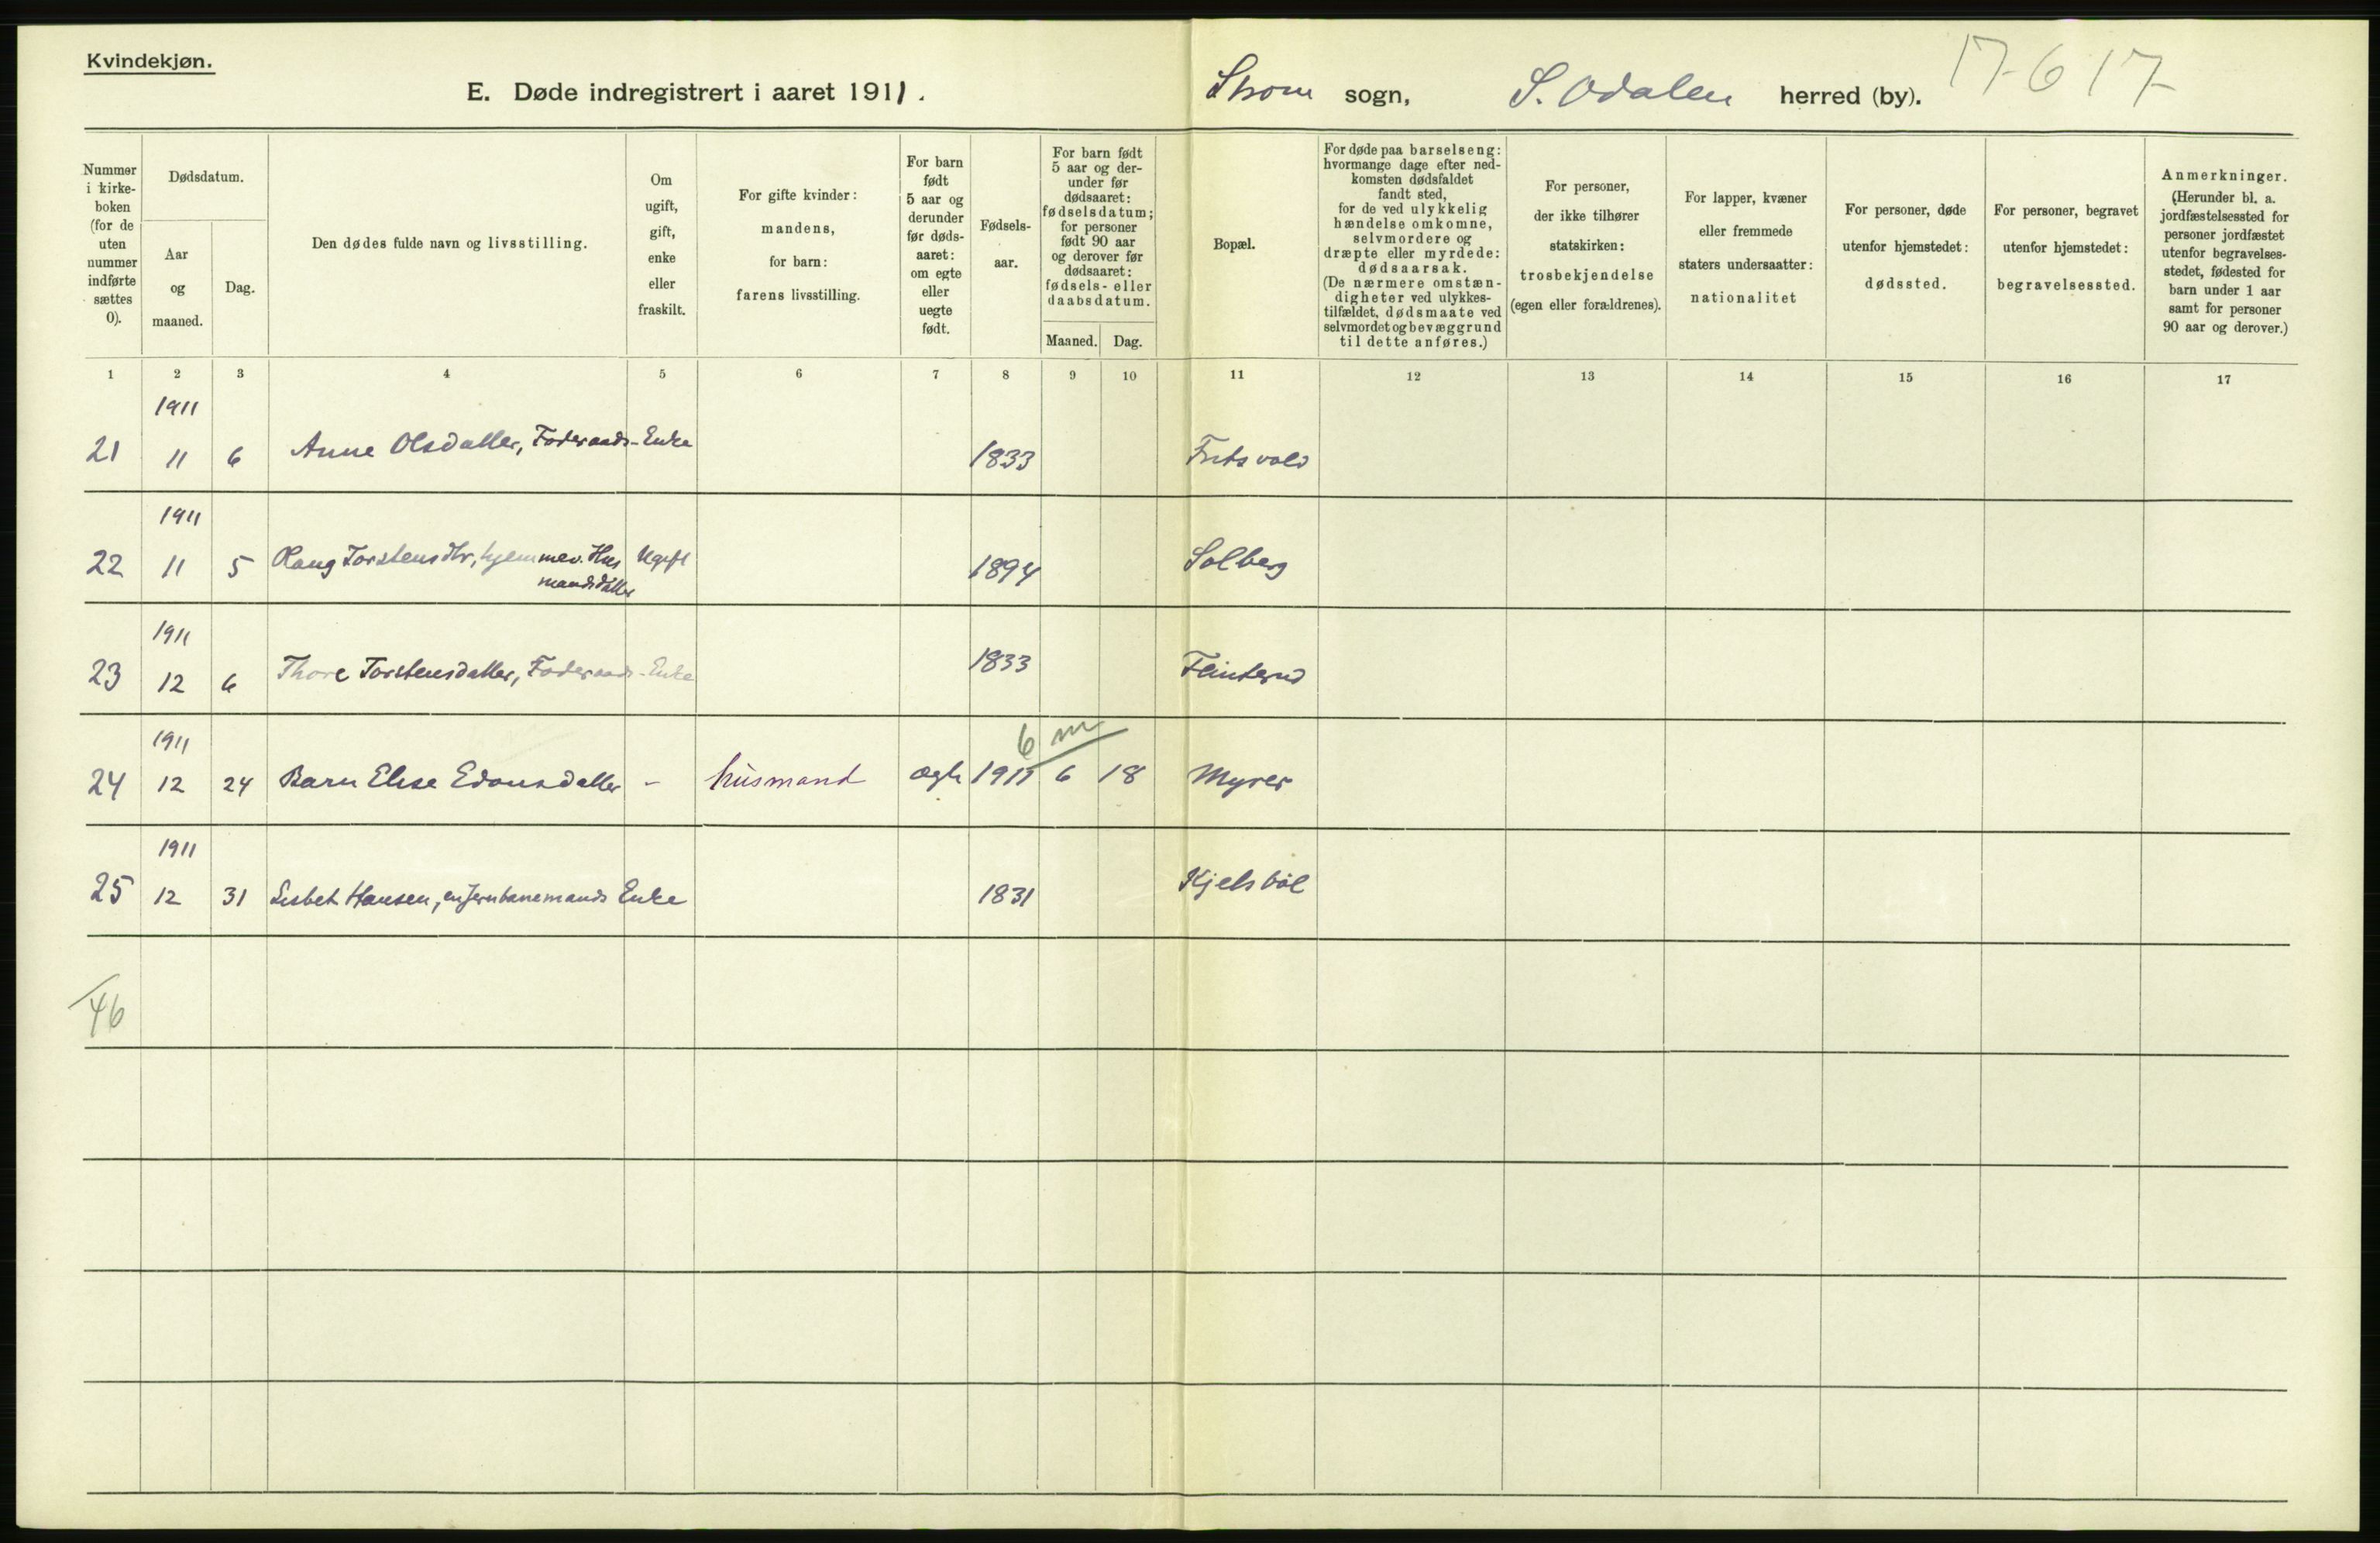 Kvindekjøn.
E. Døde indregistrert i aaret 1911.
Strøm sogn, S. Odalen herred (by).
17-6 17-
Nummer i kirke-boken (for de uten nummer indførte sættes 0).
Dødsdatum.
Aar og maaned.
Dag.
Den dødes fulde navn og livsstilling.
Om ugift, gift, enke eller fraskilt.
For gifte kvinder: mandens, for barn: farens livsstilling.
For barn født 5 aar og derunder før døds-aaret: om egte eller uegte født.
Fødsels-aar.
For barn født 5 aar og der-under før dødsaaret: fødselsdatum; for personer født 90 aar og derover før dødsaaret: fødsels- eller daabsdatum.
Maaned. Dag.
Bopæl.
For døde paa barselseng: hvormange dage efter ned-komsten dødsfaldet fandt sted, for de ved ulykkelig hændelse omkomne, selvmordere og dræpte eller myrdede: dødsaarsak. (De nærmere omstæn-digheter ved ulykkes-tilfældet, dødsmaate ved selvmordet og bevæggrund til dette anføres.)
For personer, der ikke tilhører statskirken: trosbekjendelse (egen eller forældrenes).
For lapper, kvæner eller fremmede staters undersaatter: nationalitet
For personer, døde utenfor hjemstedet: dødssted.
For personer, begravet utenfor hjemstedet: begravelsessted.
Anmerkninger. (Herunder bl. a. jordfæstelsessted for personer jordfæstet utenfor begravelses-stedet, fødested for barn under 1 aar samt for personer 90 aar og derover.)
1 2 3 4 5 6 7 8 9 10 11 12 13 14 15 16 17
1911
21 11 6 Anne Olsdatter, Foderaads- Enke 1833 Fritsvold
1911
22 11 5 Torstensdtr, hjemmev. Hus Ugift 1894 Solberg
mandsdatter
1911
23 12 6 Thore Torstensdatter, Foderaads- Enke 1833
1911 6 m
24 12 24 Barn Elise Edvinsdatter - husmand ægte 1911 6 18 Myrer
1911
25 12 31 Lisbet Hansen, en Jernbanemands Enke 1831 Kjelsbøl
46